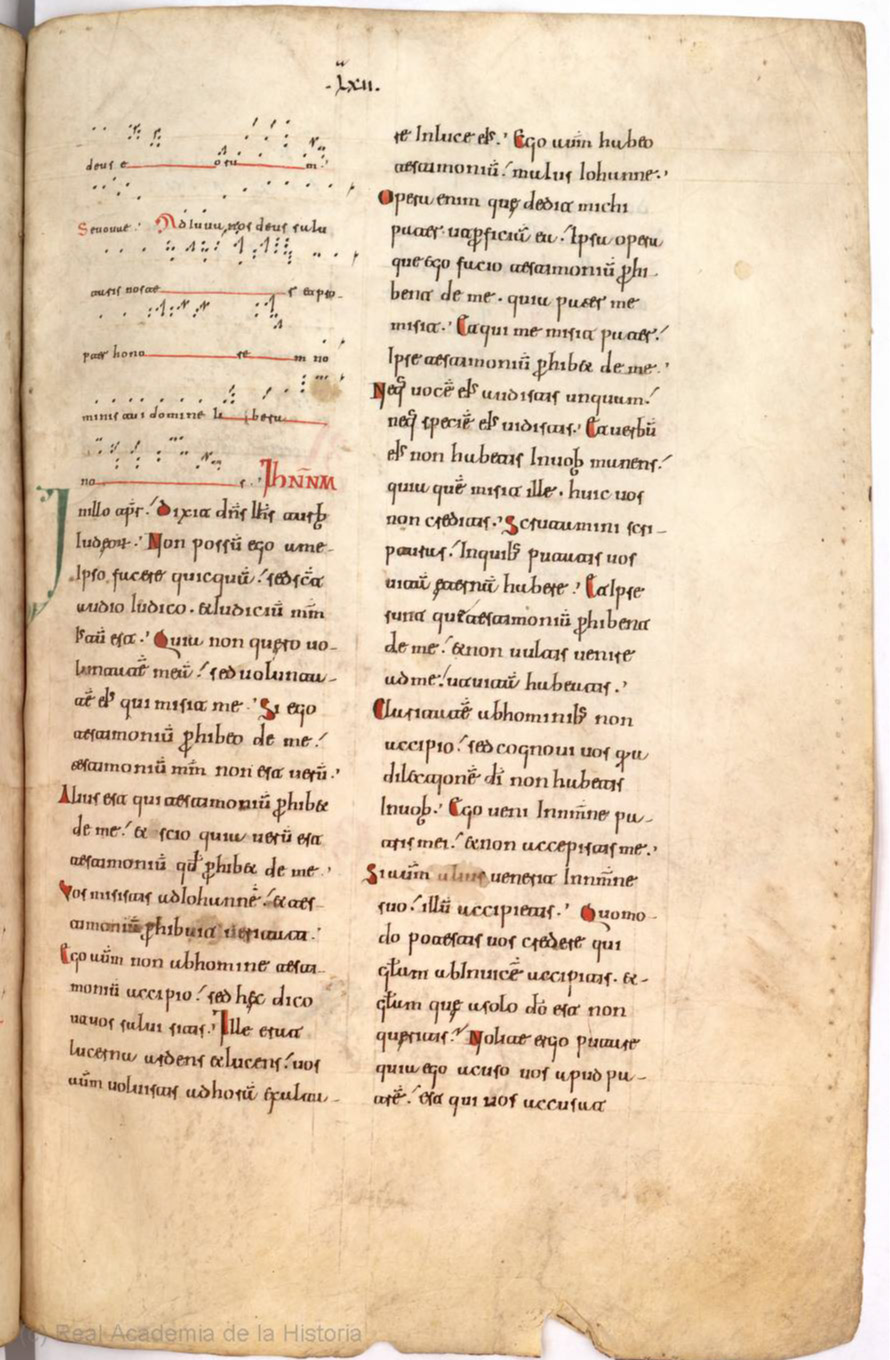 ·lxii·
deus e o su m·
Seuouae· Adiuua nos deus salu
taris noster s et pro
pter hono re m no
minis tui domine li bera
no s· IhNM
In illo tpr· Dixit dns ihs turbis
iudeorum· Non possu ego a me
ipso facere quicqua sed sic
audio iudico· et iudiciu mm
iustu est· Quia non quero uo
luntate mea sed uolunta
te eius qui misit me· Si ego
testimoniu phibeo de me
testimoniu mm non est ueru·
Alius est qui testimoniu phibet
de me· et scio quia ueru est
testimoniu qd phibet de me·
Vos misistis ad iohanne· et tes
timoniu phibuit ueritati·
Ego aum non ab homine testi
moniu accipio· sed hec dico
ut uos salui sitis· Ille erat
lucerna ardens et lucens· uos
aum uoluistis ad hora exulta
re in luce eius· Ego aum habeo
testimoniu· maius iohanne·
Opera enim que dedit michi
pater ut pficiu ea· ipsa opera
que ego facio testimoniu phi
bent de me· quia pater me
misit· Et qui me misit pater
ipse testimoniu phibet de me·
Neq uoce eius audistis unquam
neq specie eius uidistis· Et uerbu
eius non habetis in uob manens
quia que misit ille· huic uos
non creditis· Scrutamini scri
pturas· in quibus putatis uos
uita eterna habere· Et ipse
sunt que testimoniu phibent
de me· et non uultis uenire
ad me ut uita habeatis·
Claritate ab hominibus non
accipio· sed cognoui uos qia
dilectione di non habetis
in uob· Ego ueni in nmne pa
tris mei· et non accepistis me·
Si aum alius uenerit in nmne
suo· illu accipietis· Quomo
do potestis uos credere qui
glam ab inuice accipitis· et
glam que a solo do est non
queritis· Nolite ergo putare
quia ego acuso uos apud pa
tre· est qui uos accusat
(c) Real Academia de la Historia